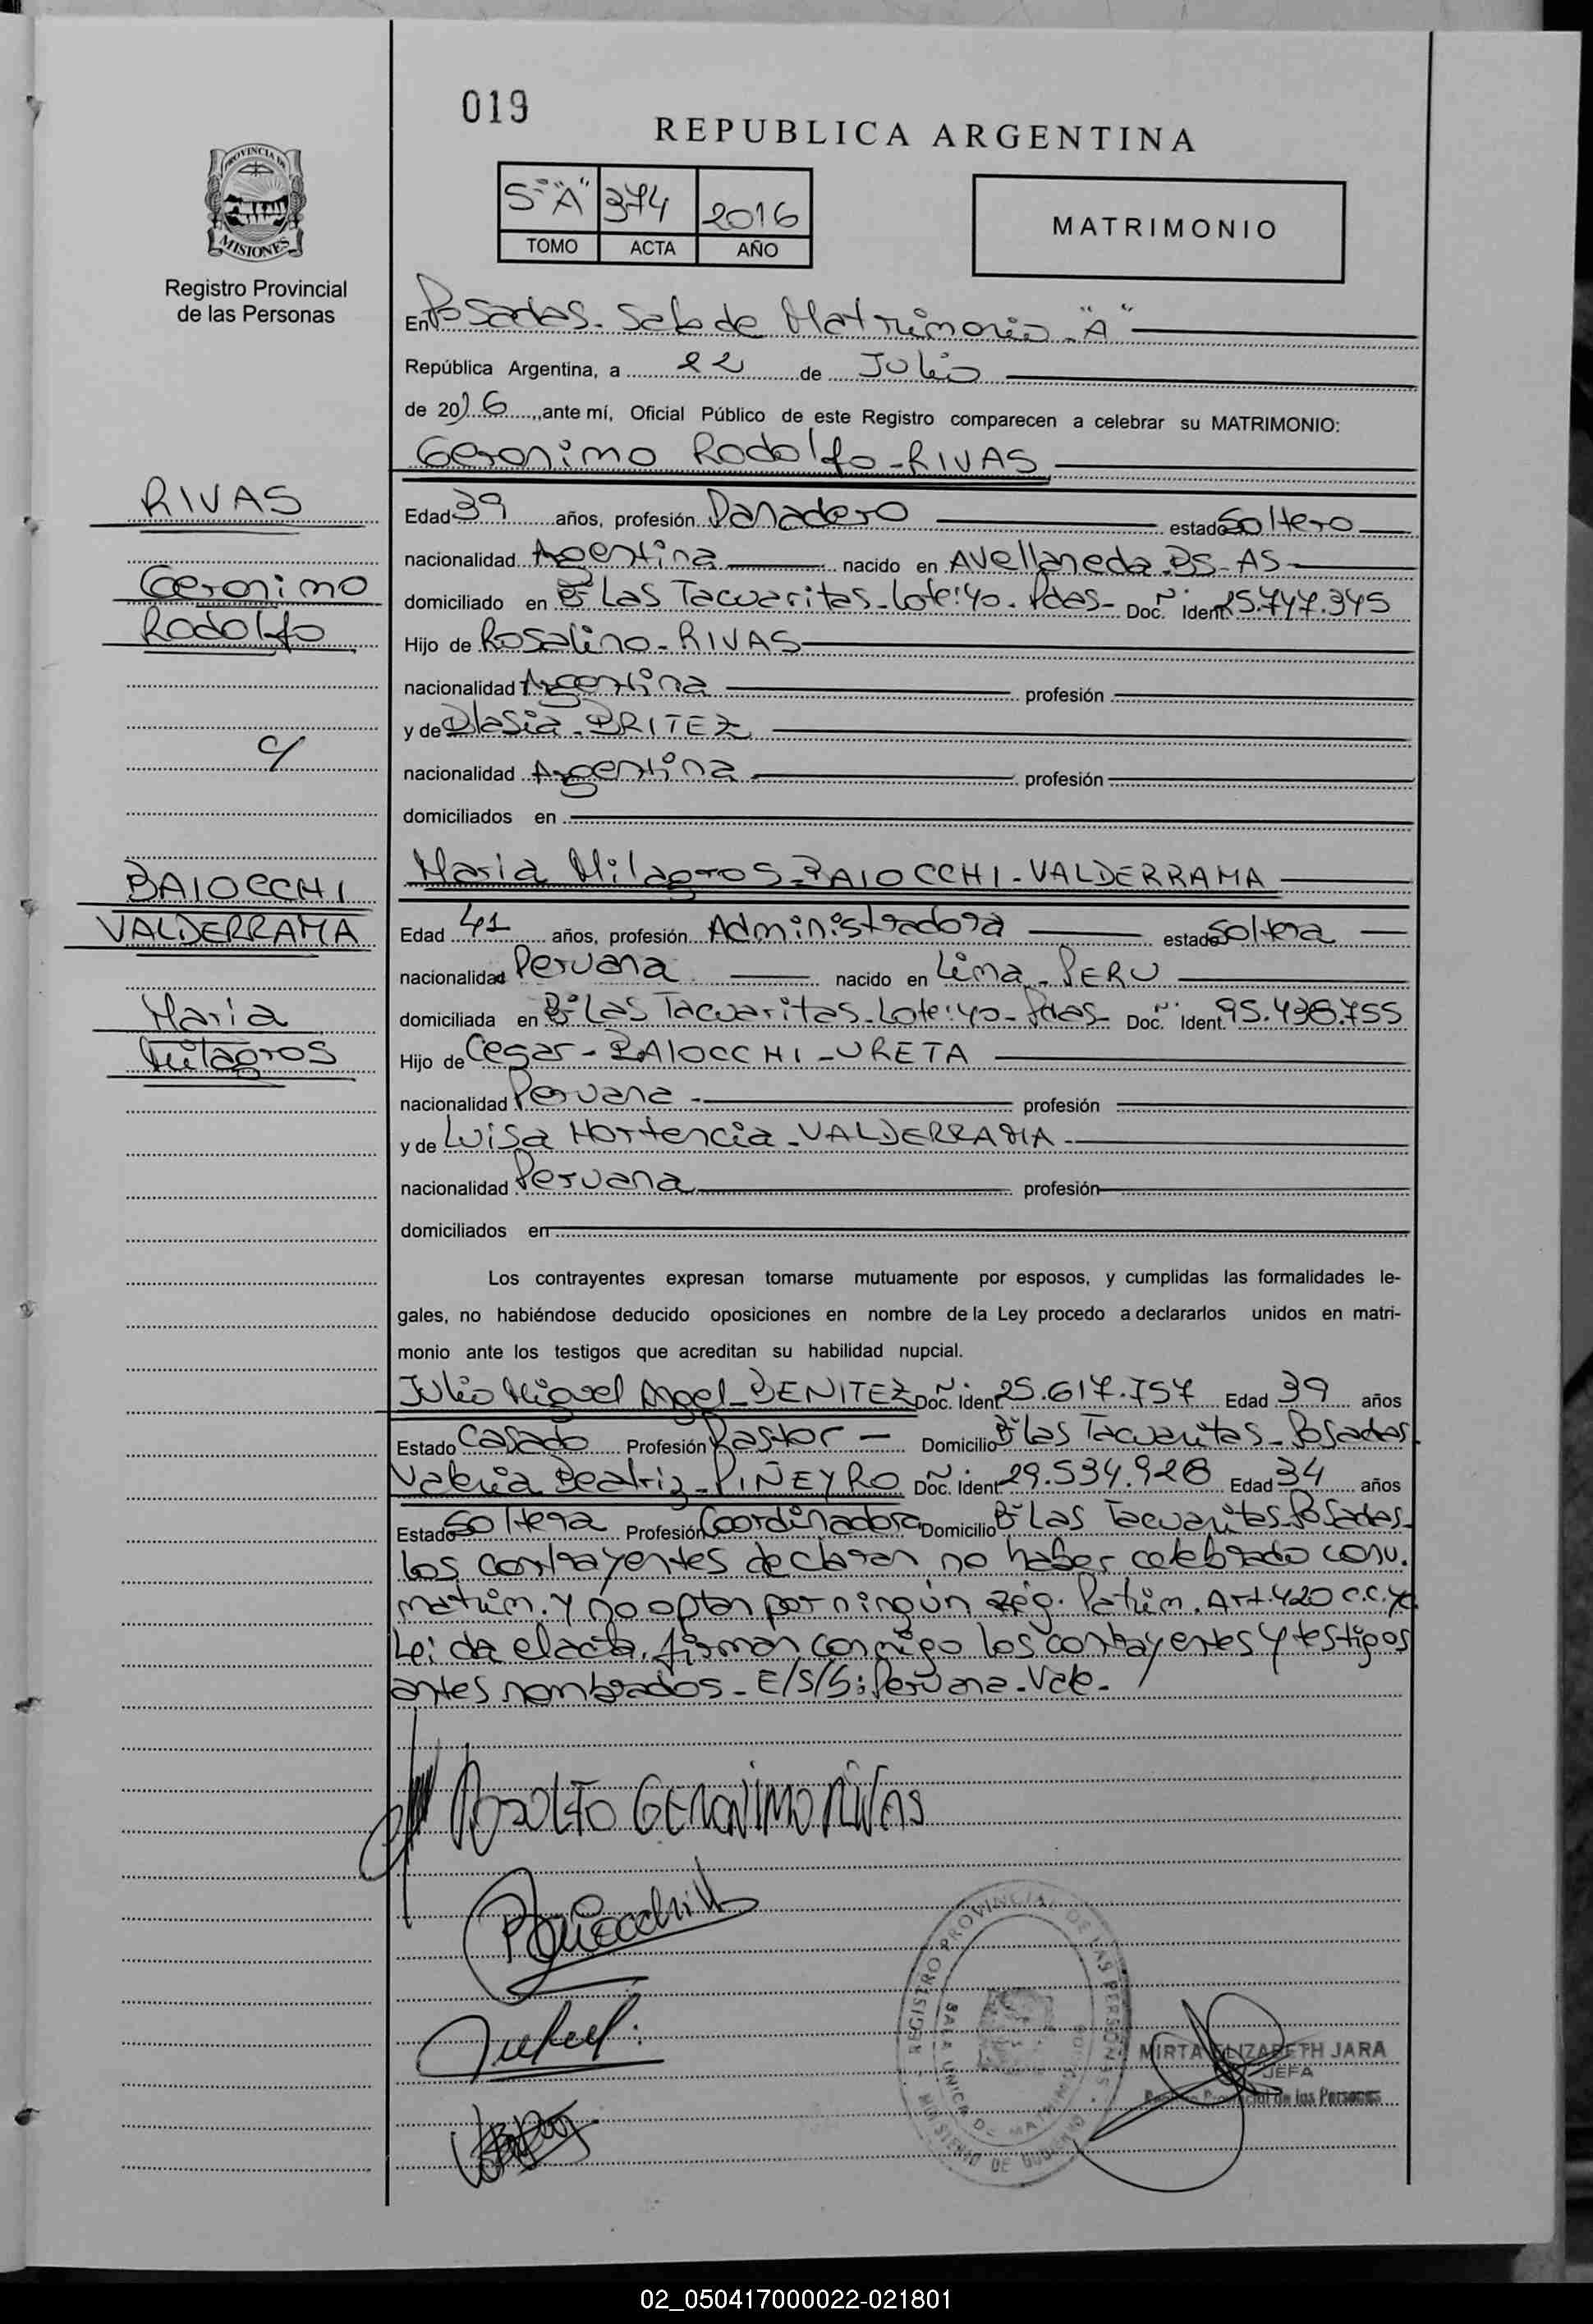 019
REPUBLICA ARGENTINA
PROVINCIA DE
MISIONES
Registro Provincial
de las Personas
5-"A" 374 2016
TOMO ACTA AÑO
MATRIMONIO
En Posadas-Sala de Matrimonio-"A"
República Argentina, a 22 de Julio
de 2016, ante mí, Oficial Público de este Registro comparecen a celebrar su MATRIMONIO:
Geronimo Rodolfo-RIVAS
RIVAS
Geronimo
Rodolfo
c/
BAIOCCHI
VALDERRAMA
Maria
Milagros
Edad 39 años, profesión Panadero estado Soltero
nacionalidad Argentina nacido en Avellaneda-BS-AS
domiciliado en B° Las Tacuaritas-Lote:40-Pdas- Doc. Ident. 25.747.345
Hijo de Rosalino-RIVAS
nacionalidad Argentina profesión
y de Blasia-BRITEZ
nacionalidad Argentina profesión
domiciliados en
Maria Milagros-BAIOCCHI-VALDERRAMA
Edad 41 años, profesión Administradora estado Soltera
nacionalidad Peruana nacido en Lima-PERU
domiciliada en B° Las Tacuaritas-Lote:40-Pdas- Doc. Ident. 95.438.755
Hijo de Cesar-BAIOCCHI-URETA
nacionalidad Peruana- profesión
y de Luisa Hortencia-VALDERRAMA-
nacionalidad Peruana profesión
domiciliados en
Los contrayentes expresan tomarse mutuamente por esposos, y cumplidas las formalidades le-
gales, no habiéndose deducido oposiciones en nombre de la Ley procedo a declararlos unidos en matri-
monio ante los testigos que acreditan su habilidad nupcial.
Julio Miguel Angel-BENITEZ Doc. Ident. 25.617.757 Edad 39 años
Estado Casado Profesión Pastor- Domicilio B° Las Tacuaritas-Posadas
Valeria Beatriz-PIÑEYRO Doc. Ident. 29.534.928 Edad 34 años
Estado Soltera Profesión Coordinadora Domicilio B° Las Tacuaritas-Posadas-
los contrayentes declaran no haber celebrado conv.
matrim. y no optan por ningún rég. Patrim. Art.420 c.c.yc.
Leída el acta, firman conmigo los contrayentes y testigos
antes nombrados-E/S/S: Peruana-Vale-
RODOLFO GERONIMO RIVAS
Baiocchi
REGISTRO PROVINCIAL DE LAS PERSONAS
SALA UNICA DE MATRIM
MINISTERIO DE GOBIERNO
MIRTA ELIZABETH JARA
JEFA
Registro Provincial de las Personas
02_050417000022-021801